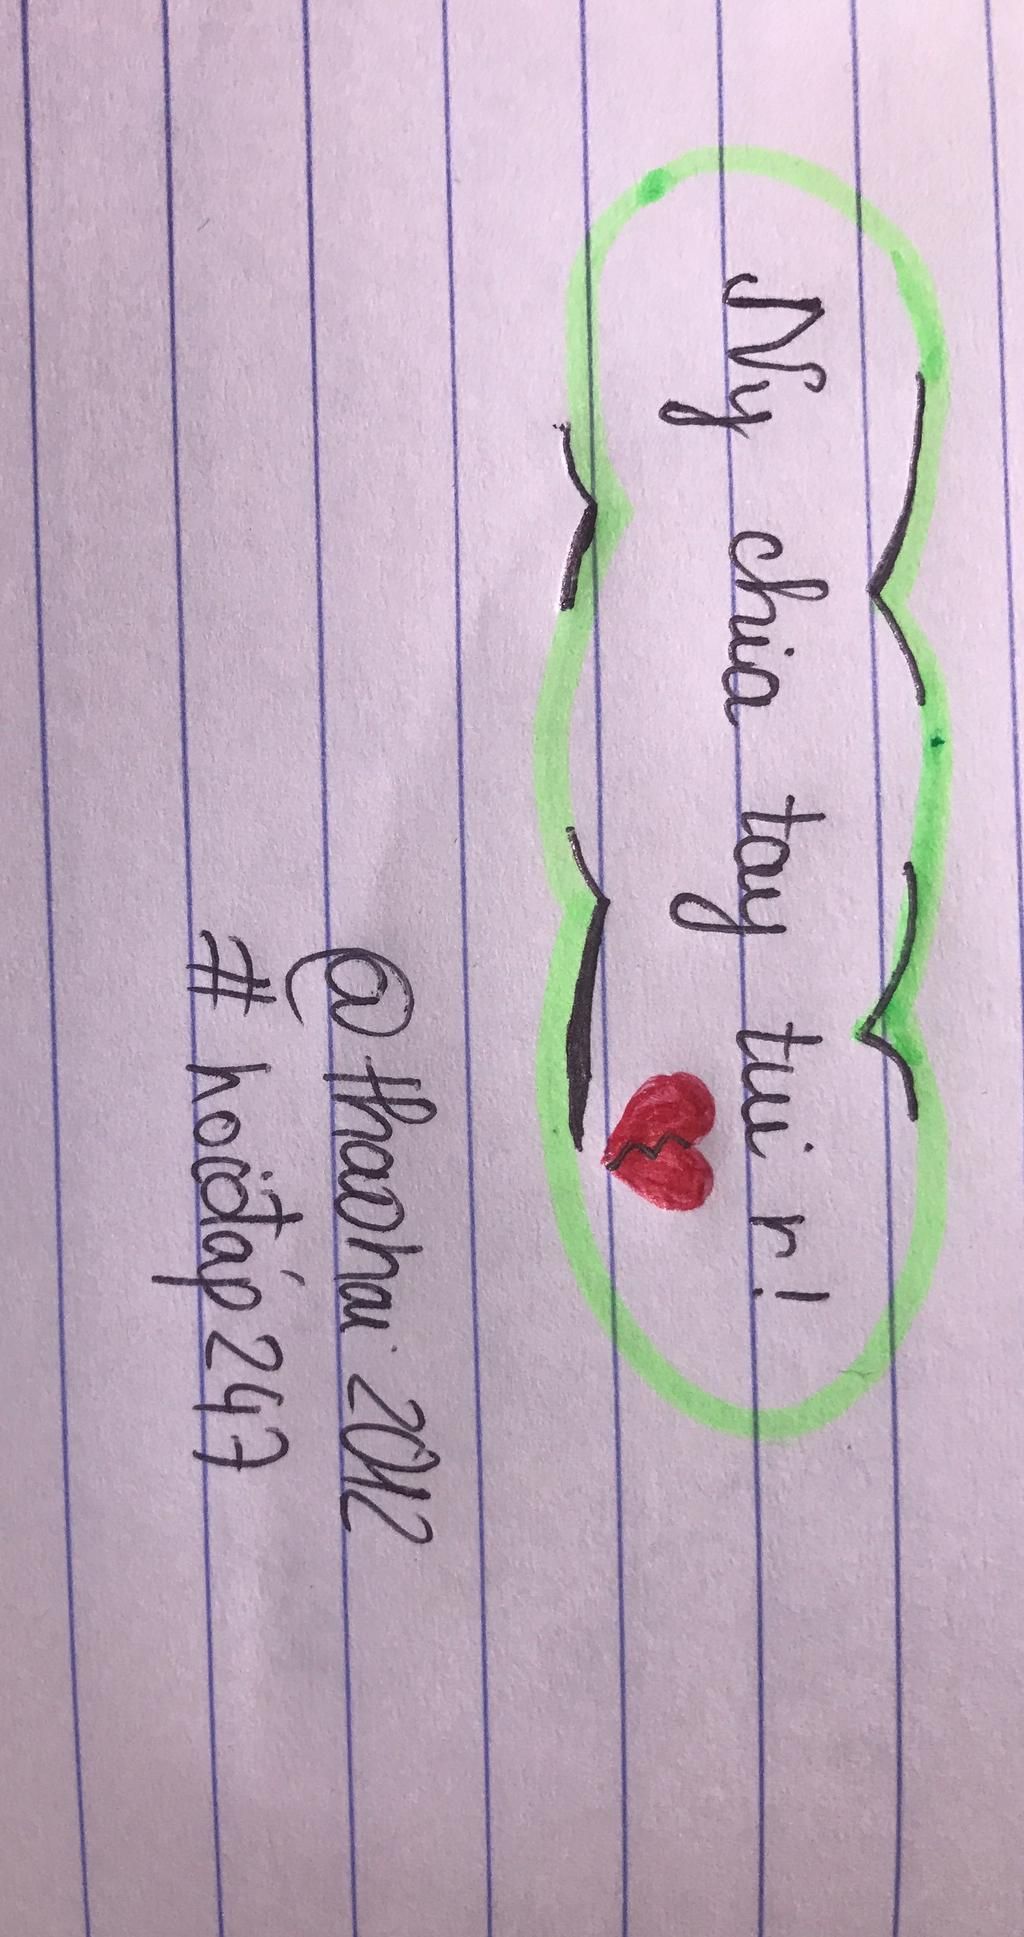 Ny chia tay tui r!
@thaohai 2012
# hoiđáp 247